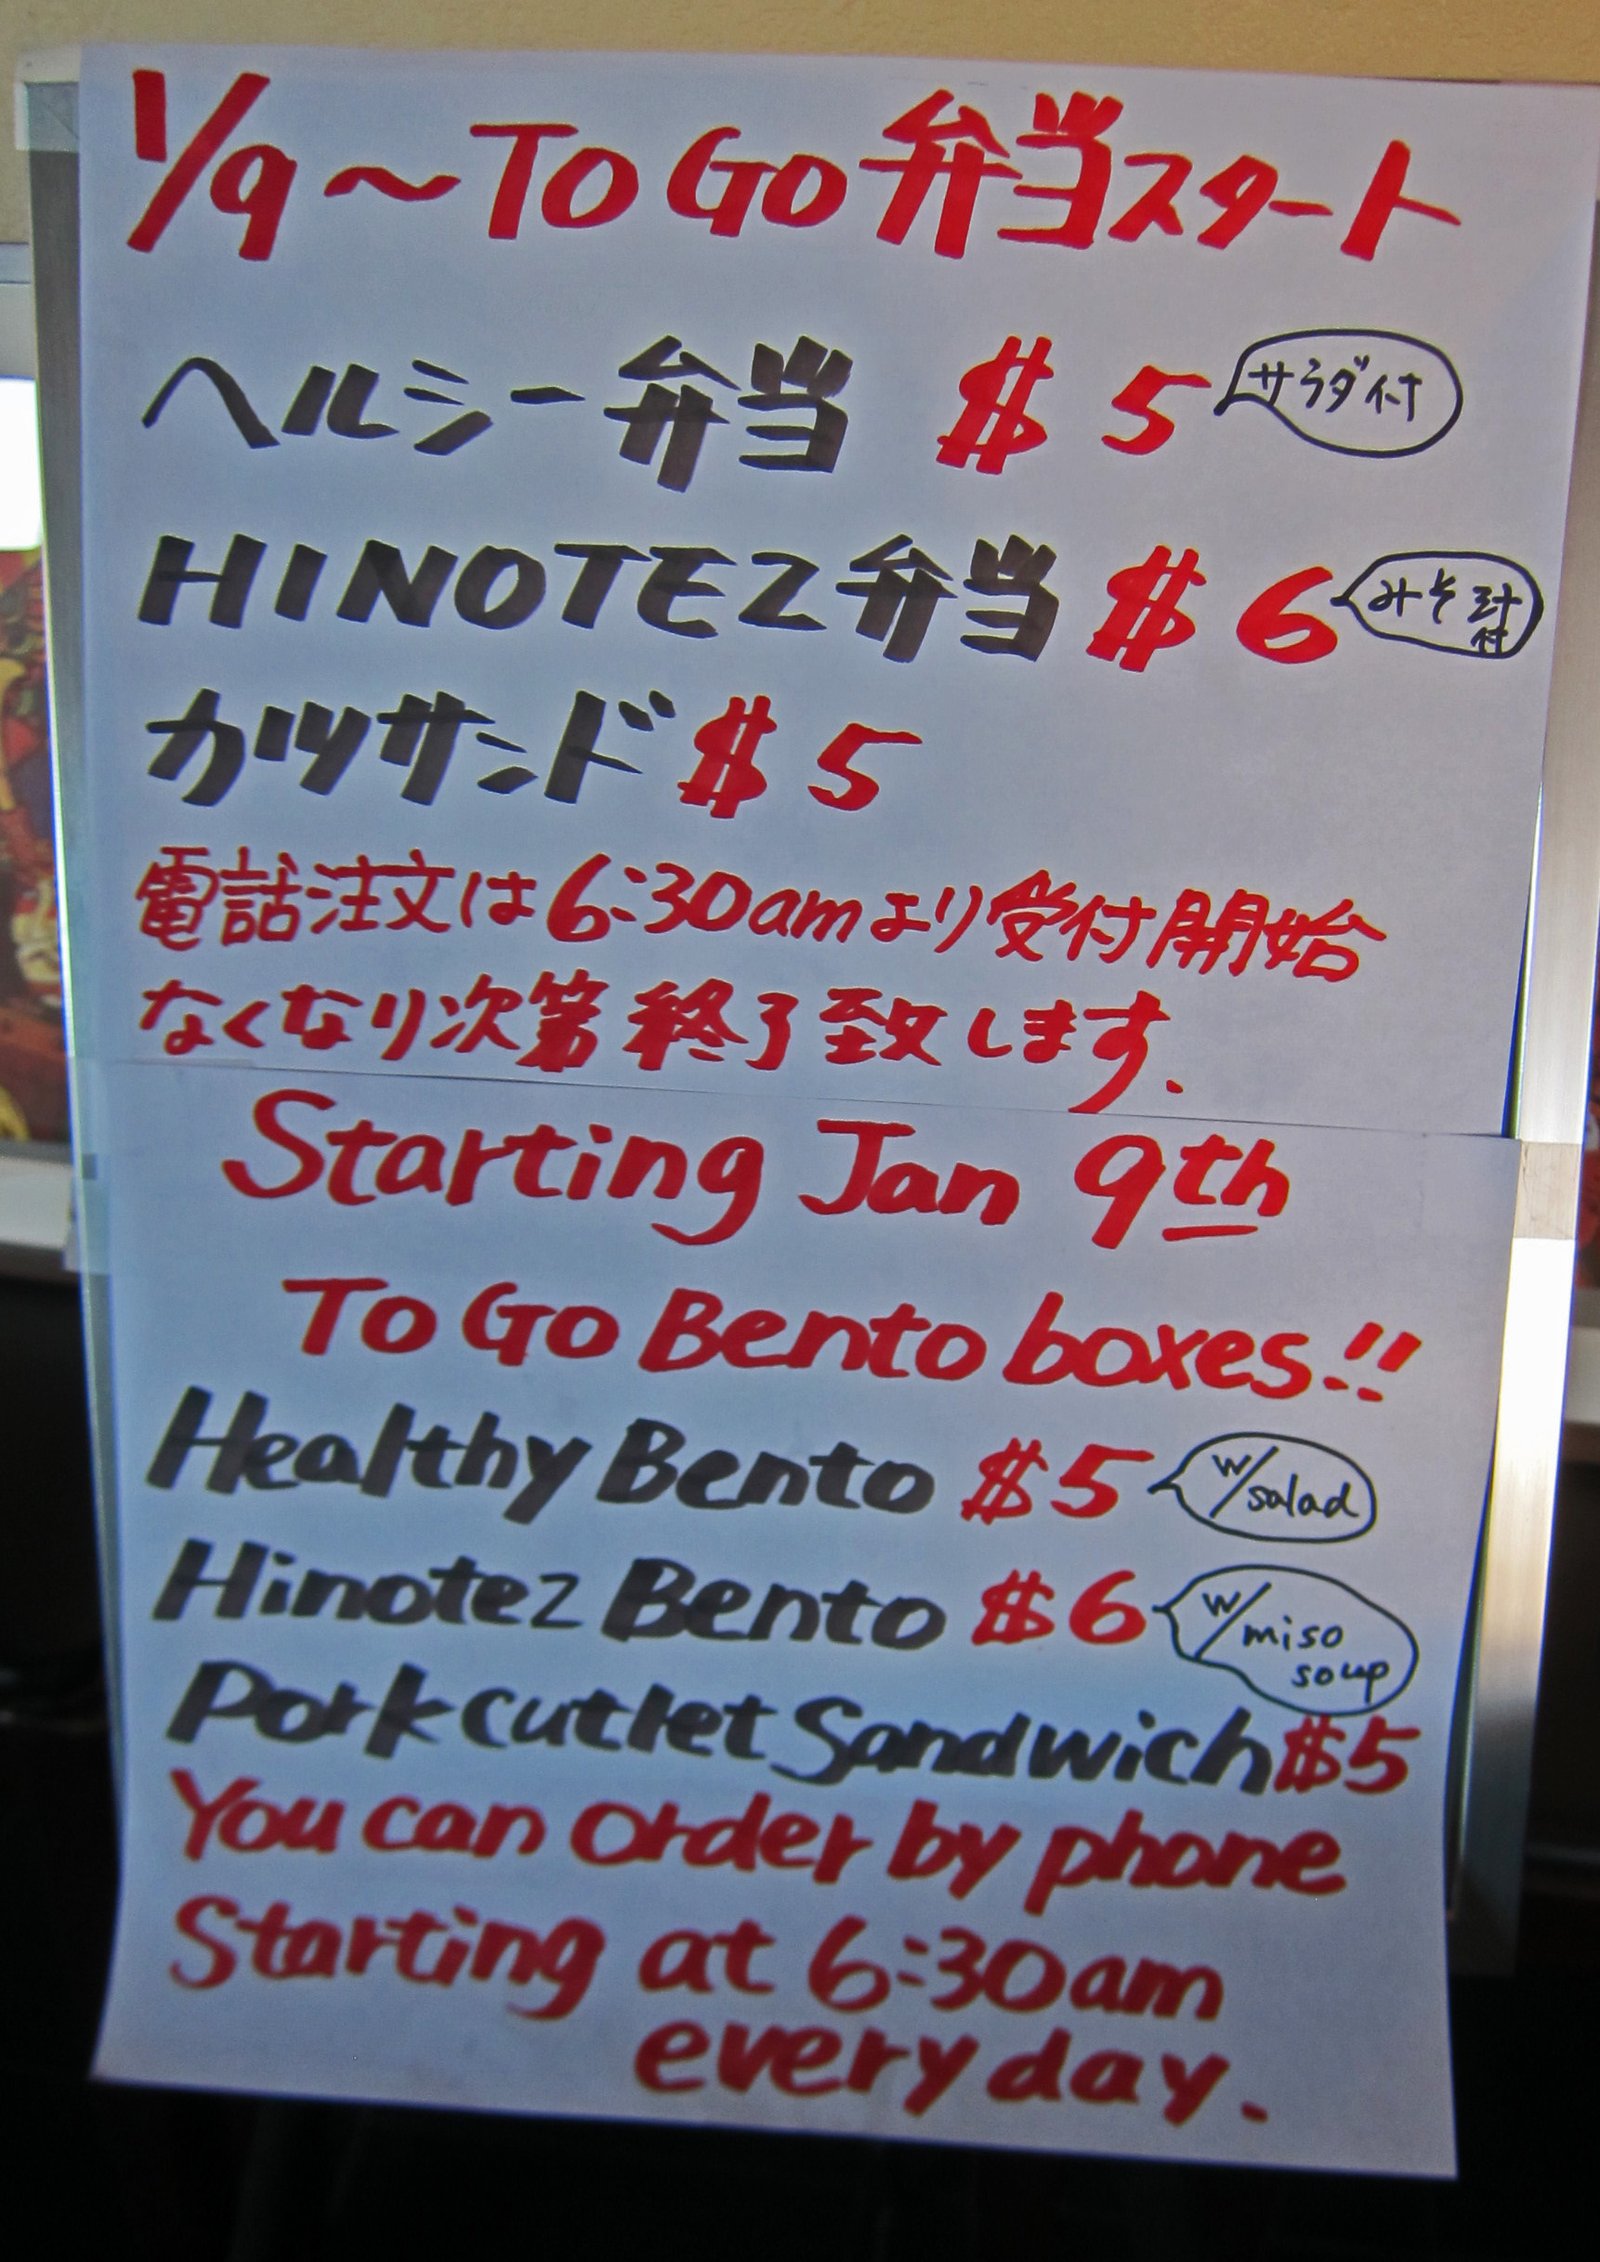 1/9〜To Go 弁当スタート
ヘルシー弁当 $5 サラダ付
HINOTEZ弁当 $6 みそ汁付
カツサンド $5
電話注文は6:30amより受付開始
なくなり次第終了致します.
Starting Jan 9th
To Go Bento boxes!!
Healthy Bento $5 w/salad
Hinotez Bento $6 w/miso soup
Pork cutlet Sandwich $5
You can order by phone
Starting at 6:30am
every day.